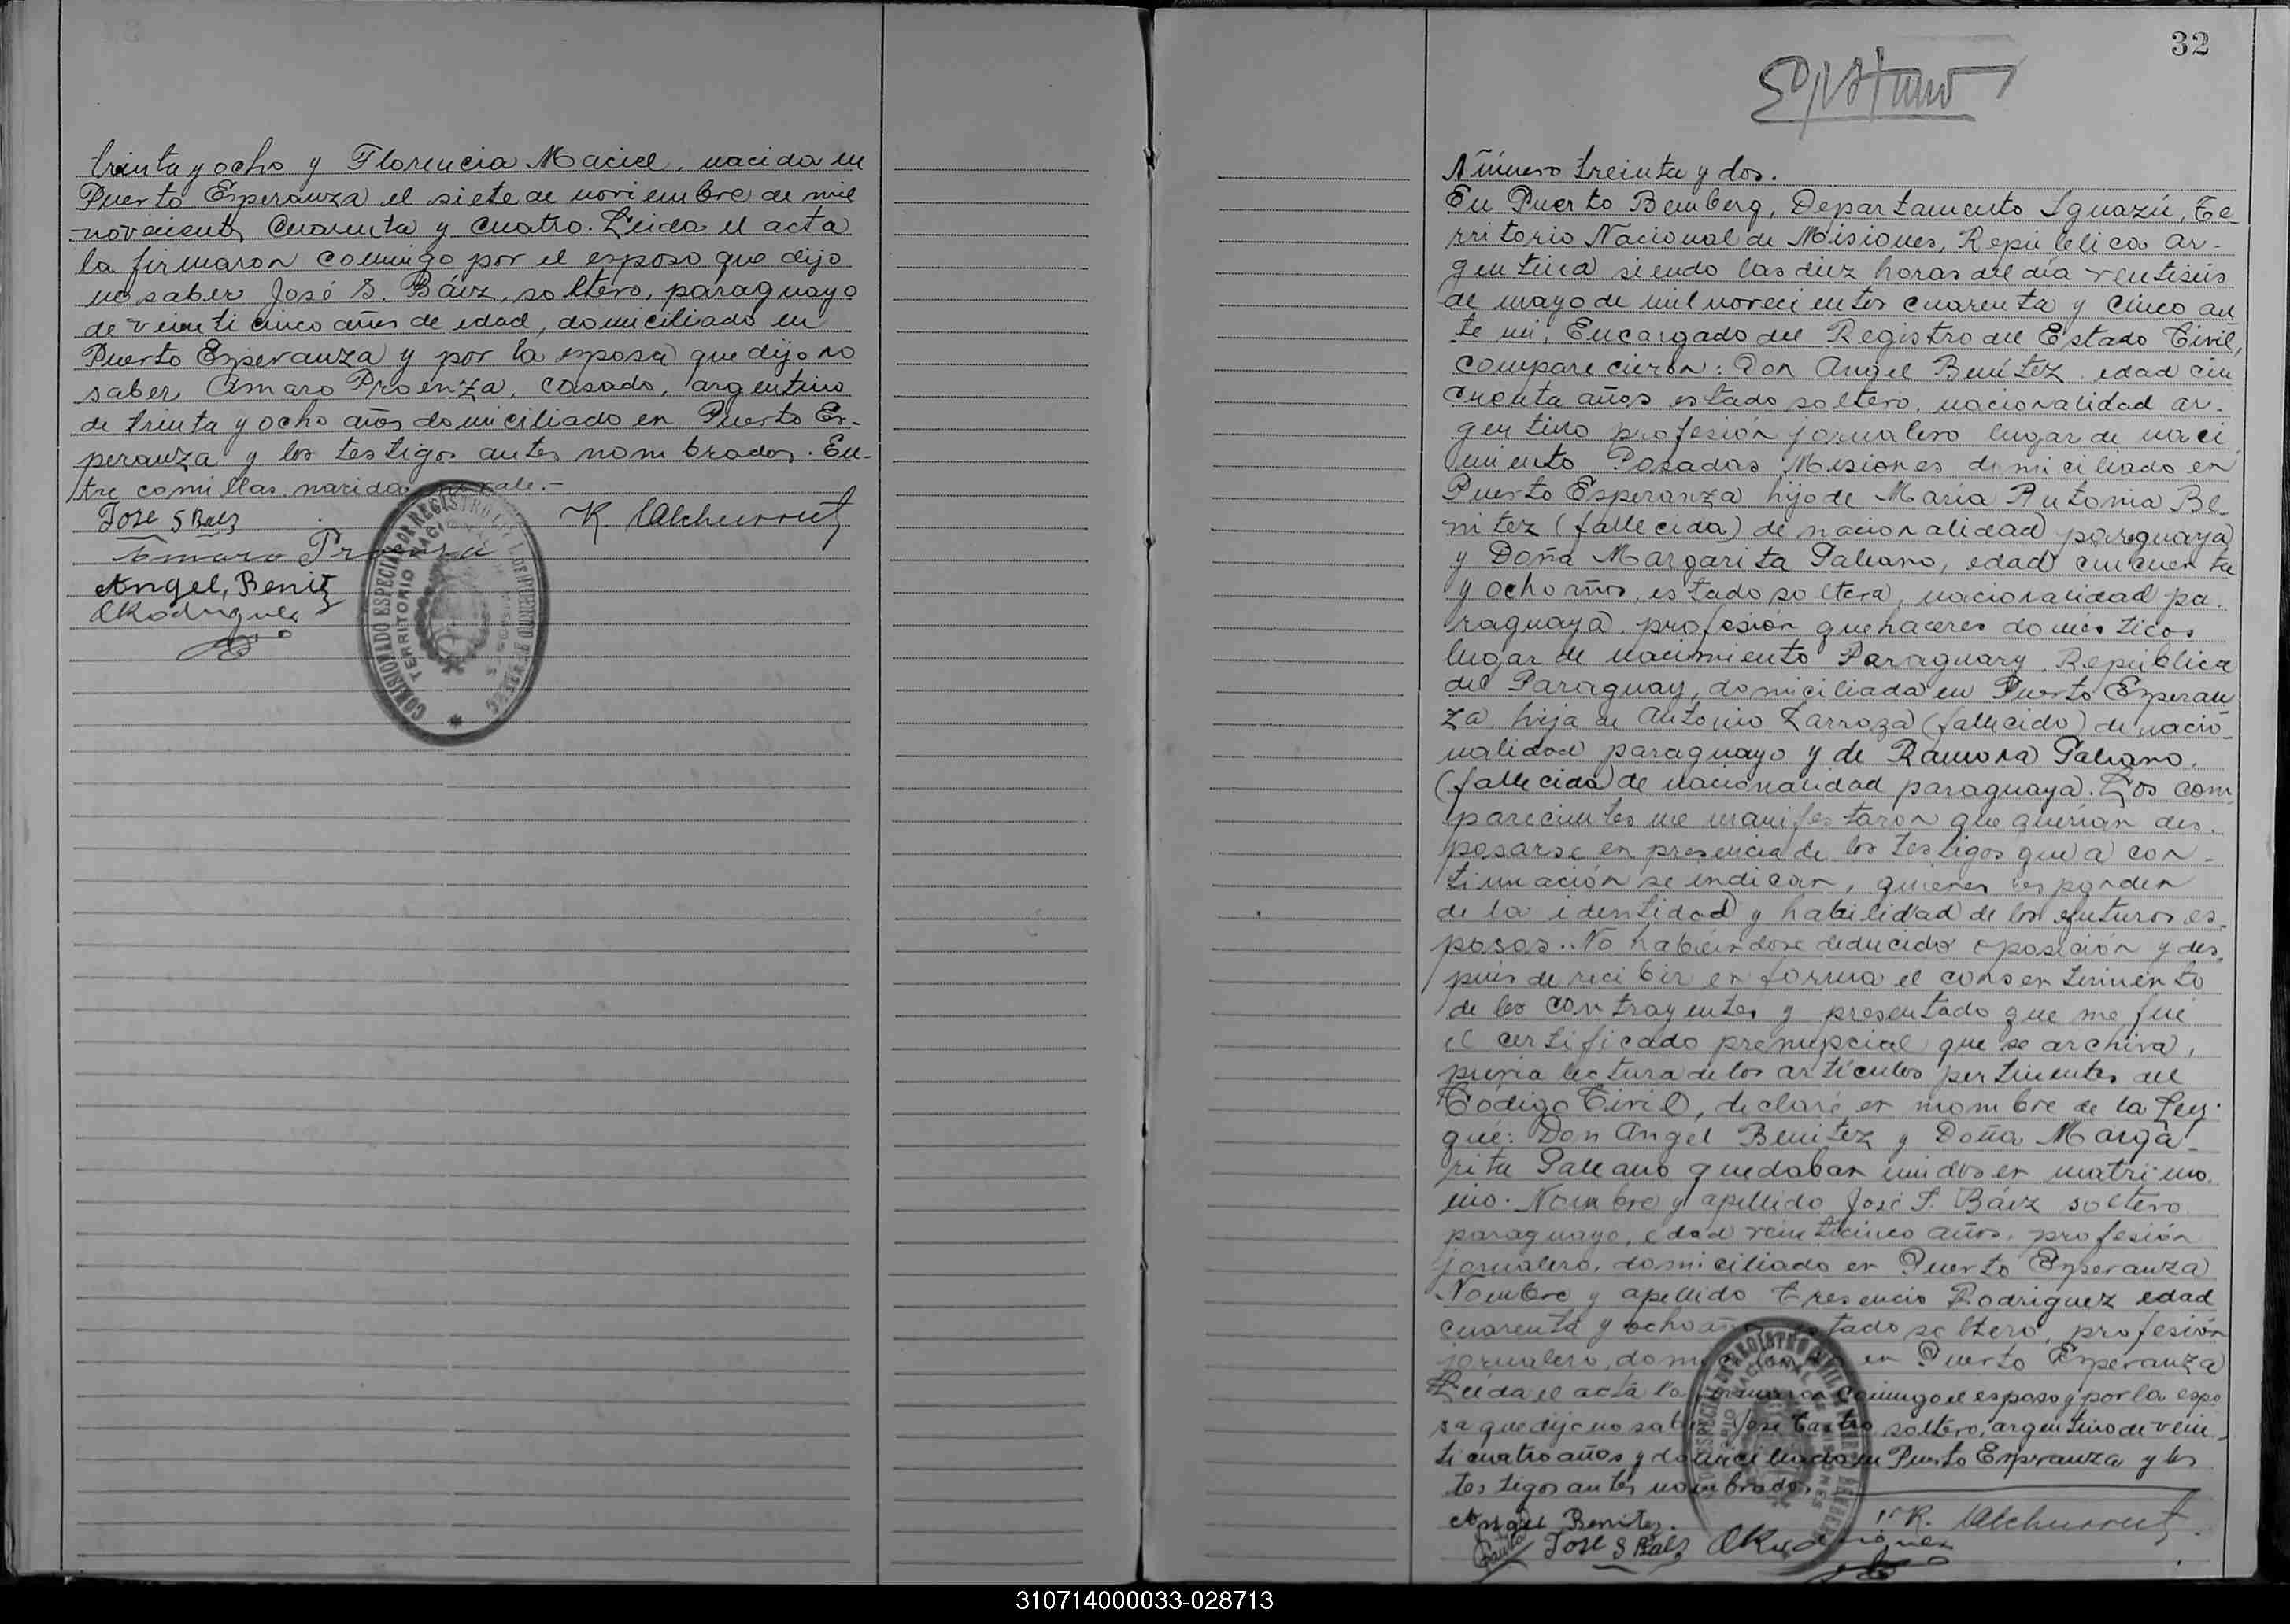 trinta y ocho y Florencia Maciel, nacida en
Puerto Esperanza el siete de noviembre de mil
novecientos cuarenta y cuatro. Leida el acta
la firmaron conmigo por el esposo que dijo
no saber José S. Báez, soltero, paraguayo
de veinticinco años de edad, domiciliado en
Puerto Esperanza y por la esposa que dijo no
saber Amaro Proenza, casado, argentino
de trinta y ocho años domiciliado en Puerto Es-
peranza y los testigos antes nombrados. En-
tre comillas nacida vale.-
Jose S Baez
Amaro Proenza
Angel, Benitz
Rodriguez
COMISIONADO ESPECIAL DE REGISTRO
TERRITORIO NACIONAL DE MISIONES
32
Número treinta y dos.
En Puerto Bemberg, Departamento Iguazú, Te-
rritorio Nacional de Misiones, República Ar-
gentina siendo las diez horas del día ventiseis
de mayo de mil novecientos cuarenta y cinco an
te mi, Encargado del Registro del Estado Civil,
comparecieron: Don Angel Benítez edad cin
cuenta años estado soltero, nacionalidad ar-
gentino profesión jornalero lugar de naci
miento Posadas Misiones domiciliado en
Puerto Esperanza hijo de María Antonia Be-
nitez (fallecida) de nacionalidad paraguaya
y Doña Margarita Galeano, edad cincuenta
y ocho años, estado soltera, nacionalidad pa-
raguaya, profesión quehaceres domésticos
lugar de nacimiento Paraguary República
del Paraguay, domiciliada en Puerto Esperan
za, hija de Antonio Larroza (fallecido) de nacio-
nalidad paraguayo y de Ramona Galeano,
(fallecida) de nacionalidad paraguaya. Los com-
parecientes me manifestaron que querian des-
posarse en presencia de los testigos que a con-
tinuación se indican, quienes responden
de la identidad y habilidad de los futuros es-
posos. No habiéndose deducido oposición y des-
pués de recibir en forma el consentimiento
de los contrayentes y presentado que me fué
el certificado prenupcial que se archiva,
previa lectura de los artículos pertinentes del
Código Civil, declaré en nombre de la Ley
que: Don Angel Benitez y Doña Marga-
rita Galeano quedaban unidos en matrimo
nio. Nombre y apellido José S. Báez soltero
paraguayo, edad veinticinco años, profesión
jornalero, domiciliado en Puerto Esperanza
Nombre y apellido Cresencio Rodriguez edad
cuarenta y ocho años estado soltero, profesión
jornalero, domiciliado en Puerto Esperanza
Leida el acta la firmaron conmigo el esposo y por la espo
sa que dijo no saber José Castro soltero, argentino de vein-
ticuatro años y domiciliado en Puerto Esperanza y los
testigos antes nombrados.
Angel Benites.
Jose S Baez Rodriguez
310714000033-028713